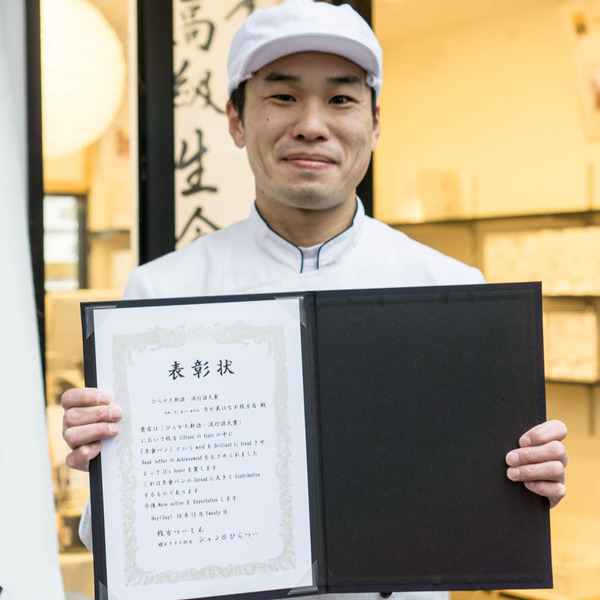 高級生食
表彰状
ひらかた新語・流行語大賞
乃が美はなれ枚方店 殿
貴店は「ひらかた新語・流行語大賞」
において枚方 Citizen の topic の中に
「生食パン」という word を brilliant に trend させ、
Head letter の Achievement をおさめられました
よって It's honor を賞します
これは生食パンの Spread に大きく Contribution
するものであります
今後 More active を Expectation します
Hey!(Say) 30 年 12 月 Twenty 日
枚方つーしん
シュン@ひらつー